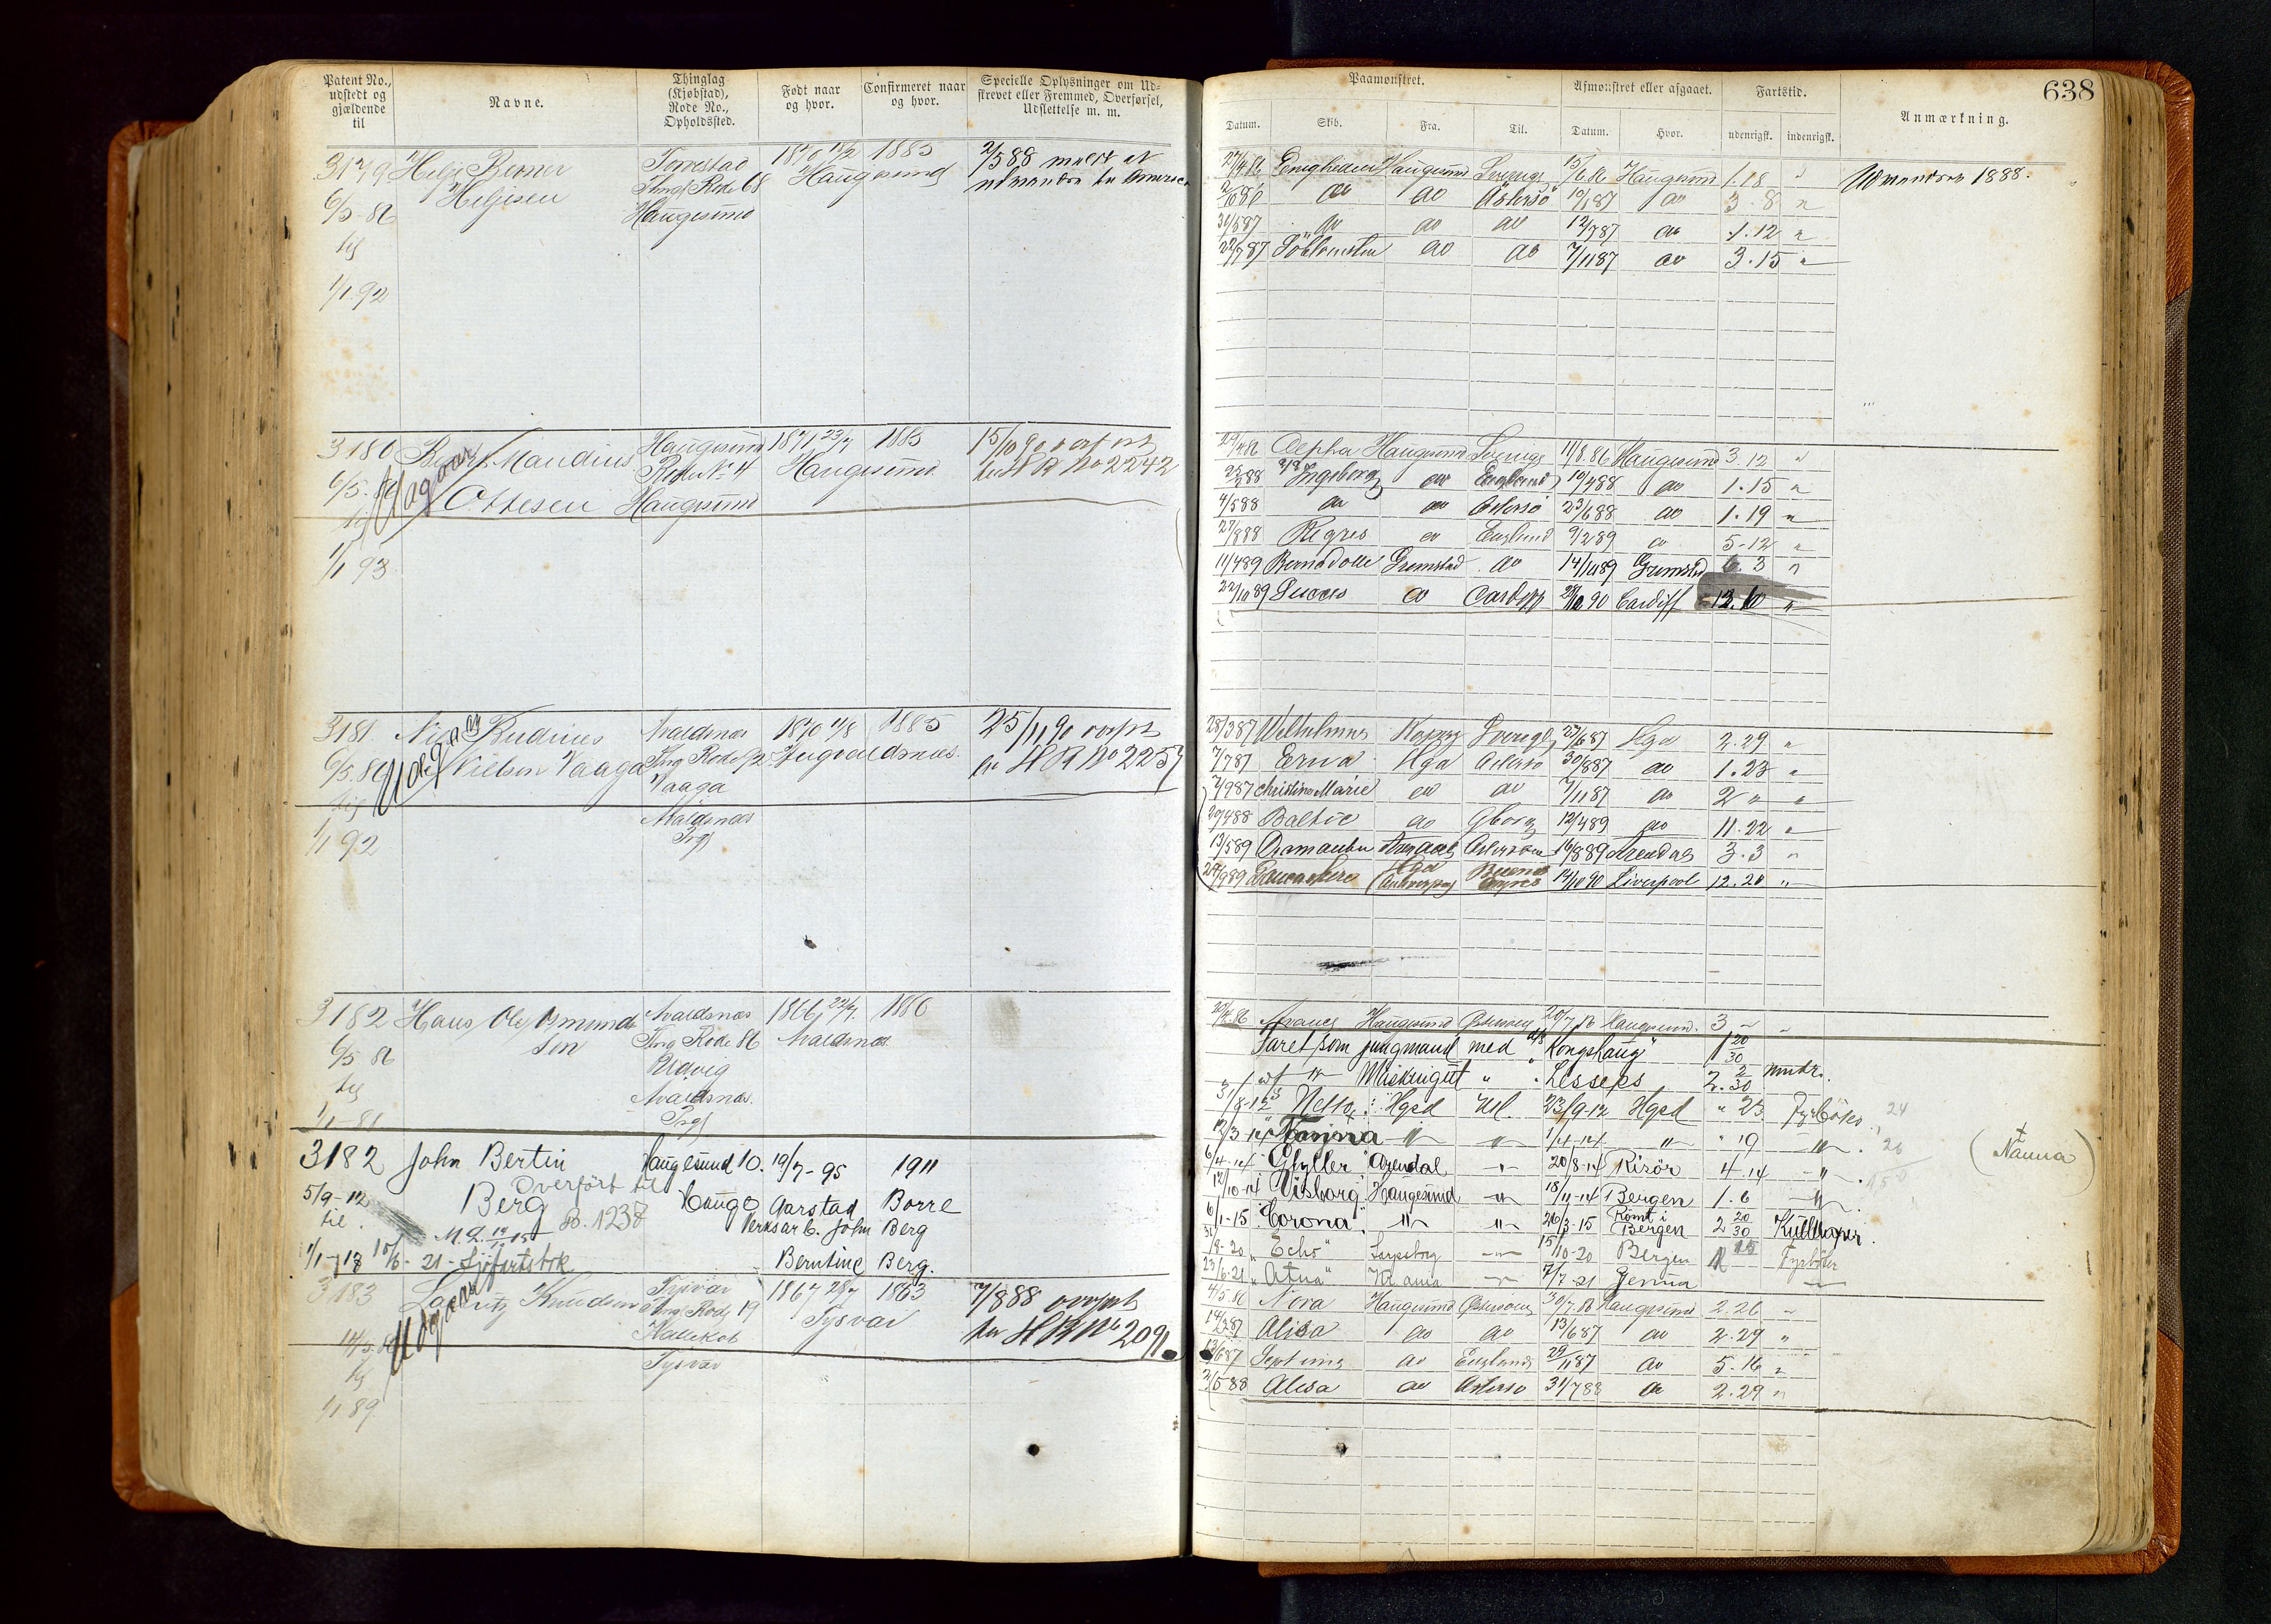 Patent No., udstedt og gjældende til
Navne.
Thinglag (Kjøbstad), Rode No., Opholdssted.
Født naar og hvor.
Confirmeret naar og hvor.
Specielle Oplysninger om Udskrevet eller Fremmed, Overførsel, Udslettelse m. m.
3179
Helje Berner
Heljesen
6/5 86
til
1/1 92
Torvestad
Thing Rode 68
Haugesund
1870
1885
Haugesund
2/5 88
3180
Mandius
Ottesen
6/5 86
til
1/1 93
Udgaar
Haugesund
Rode No 4
Haugesund
1871 23/7
1885
Haugesund
15/10 90 overf
til H R No 2242
3181
Nils Rudinius
Nielsen Vaaga
6/5 86
til
1/1 92
Udgaar
Avaldsnæs
Ting Rode 92
Vaaga
Avaldsnæs
Prgj
1870 11/8
1885
Avaldsnæs
25/11 90
H R No 2257
3182
Hans Ole Osmund
sen
6/5 86
til
1/1 81
Avaldsnæs
Ting Rode 86
Udvig
Avaldsnæs
Prgj
1866 22/7
1886
Avaldsnæs
3182
John Bertin
Berg
Overført til
B. 1238
5/9-12
til
1/1-18
10/6-21 - Sjøfartsbok
Haugesund 10.
Haug
19/7-95
1911
Aarstad
Borre
Verksarb. John Berg
Berntine Berg.
3183
Lauritz Knudsen
14/5 86
til
1/1 89
Udgaar
Tysvær
Ting Rode 19
Hallekob
Tysvær
1867 28/7
1883
Tysvær
7/8 88
H R No 2091
638
Paamønstret.
Afmønstret eller afgaaet.
Fartstid.
Anmærkning.
Datum. Skib. Fra. Til. Datum. Hvor. udenrigsk. indenrigsk.
27/4 86 Enigheden Haugesund Sverige 15/6 86 Haugesund 1.18 "
Udvandret 1888.
2/10 86 do do Østersø 10/1 87 do 3.8 "
31/5 87 do do do 12/7 87 do 1.12 "
22/7 87 do do 7/11 87 do 3.15 "
29/4 86 Alpha Haugesund Sverige 11/8 86 Haugesund 3.12 "
25/2 88 Ingeborg do England 10/4 88 do 1.15 "
4/5 88 do do Østersø 23/6 88 do 1.19 "
27/8 88 Regres do England 9/2 89 do 5.12 "
11/4 89 Bernadotte Grimstad do 14/10 89 Grimstad 6.3 "
22/10 89 Succes do Cardiff 90 Cardiff 12.10 "
28/3 87 Wilhelmus Kopvig Sverige 27/6 87 Hga 2.29 "
7/7 87 Erna Hga Østersø 30/8 87 do 1.23 "
7/9 87 Christine Marie do do 7/11 87 do 2 " "
20/4 88 Baltic do Gborg 12/4 89 do 11.22 "
13/5 89 Arendal Østersøen 16/8 89 Arendal 3.3 "
24/9 89 Lancashire Antwerpen Buenos Ayres 14/10 90 Liverpool 12.20 "
20/4 86 Haugesund Østersøen 20/7 86 Haugesund. 3 " "
Faret som jungmand med "Kongshaug" 1 20/30
" Maskingut " "Lesseps" 2. 2/30 mndr.
31/8-12 Hgsd Udl. 23/9-12 Hgsd " 23 Fyrböter 24
12/3-14 "Fanina" " " 1/4-14 " " 19 " 20
(Nanna)
6/4-14 "Glyller" Arendal " 20/8-14 Risör 4.14 "
12/10-14 "Visborg" Haugesund " 18/11-14 Bergen 1.6 "
6/1-15 "Corona" " " 26/3-15 Rømt i Bergen 2 20/30 Kullemper.
31/8-20 "Echo" Sarpsborg " 15/10-20 Bergen 1 15 Fyrböter
23/6-21 "Atna" Kr.ania " 7/7-21 Jenna "
4/5 86 Nora Haugesund Østersøen 30/7 86 Haugesund 2.26 "
14/3 87 Alisa do do 13/6 87 do 2.29 "
13/6 87 Septima do England 29/11 87 do 5.16 "
2/5 88 Alisa do Østersø 31/7 88 do 2.29 "